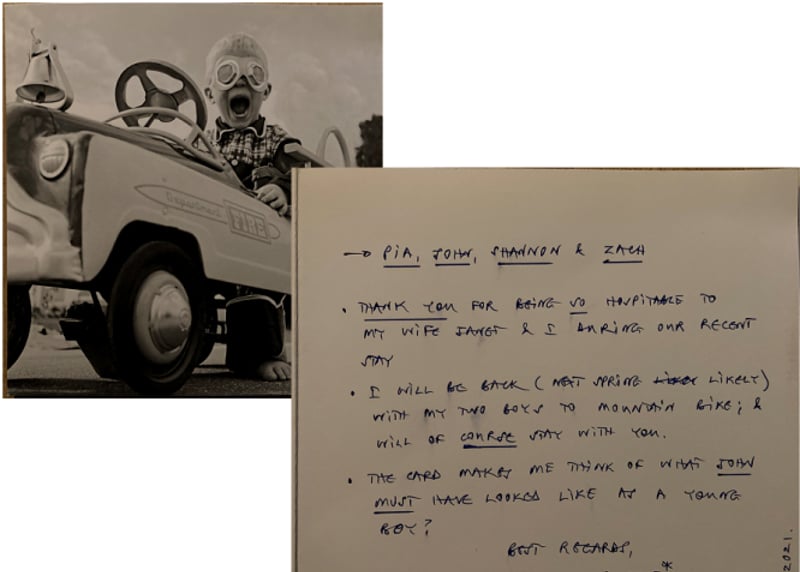 Department FIRE
→ PIA, JOHN, SHANNON & ZACH
• THANK YOU FOR BEING SO HOSPITABLE TO
MY WIFE JANET & I DURING OUR RECENT
STAY
• I WILL BE BACK ( NEXT SPRING LIKELY)
WITH MY TWO BOYS TO MOUNTAIN BIKE; &
WILL OF COURSE STAY WITH YOU.
• THE CARD MAKES ME THINK OF WHAT JOHN
MUST HAVE LOOKED LIKE AS A YOUNG
BOY?
BEST REGARDS,
*
2021.